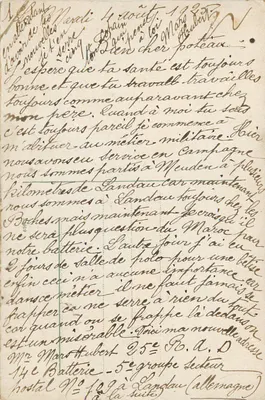 Mardi 4 août 1925
Bien cher poteau
espère que ta santé est toujours
bonne et que tu travaille travailles
toujours comme auparavant chez
mon père. Quand à moi tu sais
c'est toujours pareil je commence à
m'habituer au métier militaire. Hier
nous avons eu service en Campagne
nous sommes partis à Meuden à plusieurs
kilomètres de Landau car maintenant
nous sommes à Landau toujours chez les
Boches mais maintenant je crois qu'il
ne sera plus question du Maroc pour
notre batterie. L'autre jour j'ai eu
2 jours de salle de police pour une bêtise
enfin ceci n'a aucune importance car
dans ce métier il ne faut jamais se
frapper ça ne sert à rien du tout
car quand on se frappe là dedans on
est un misérable. Voici ma nouvelle adresse
Mr Marc Hubert 25e R.A.D
14e Batterie - 5e groupe Secteur
postal No 189 à Landau (allemagne)
(à la suite)